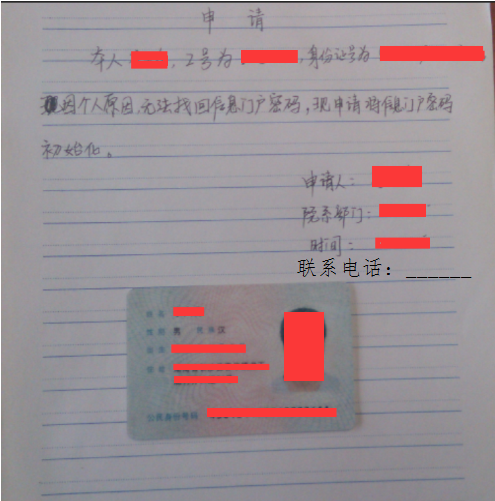 申 请
本人 ，工号为 ，身份证号为
现因个人原因，无法找回信息门户密码，现申请将信息门户密码
初始化。
申请人：
院系部门：
时间：
联系电话：______
姓 名
性 别 男 民 族 汉
出 生
住 址
公民身份号码